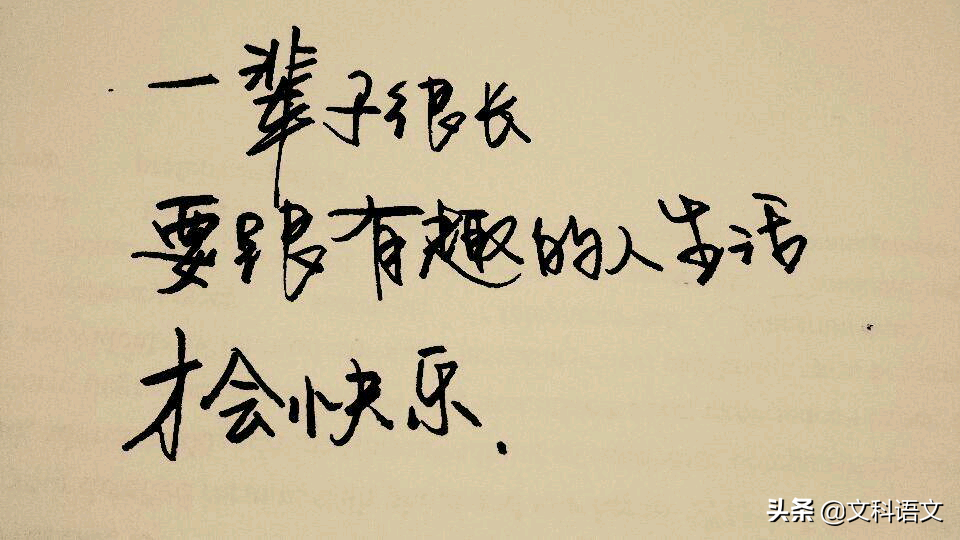 一辈子很长
要跟有趣的人生活
才会快乐.
头条 @文科语文